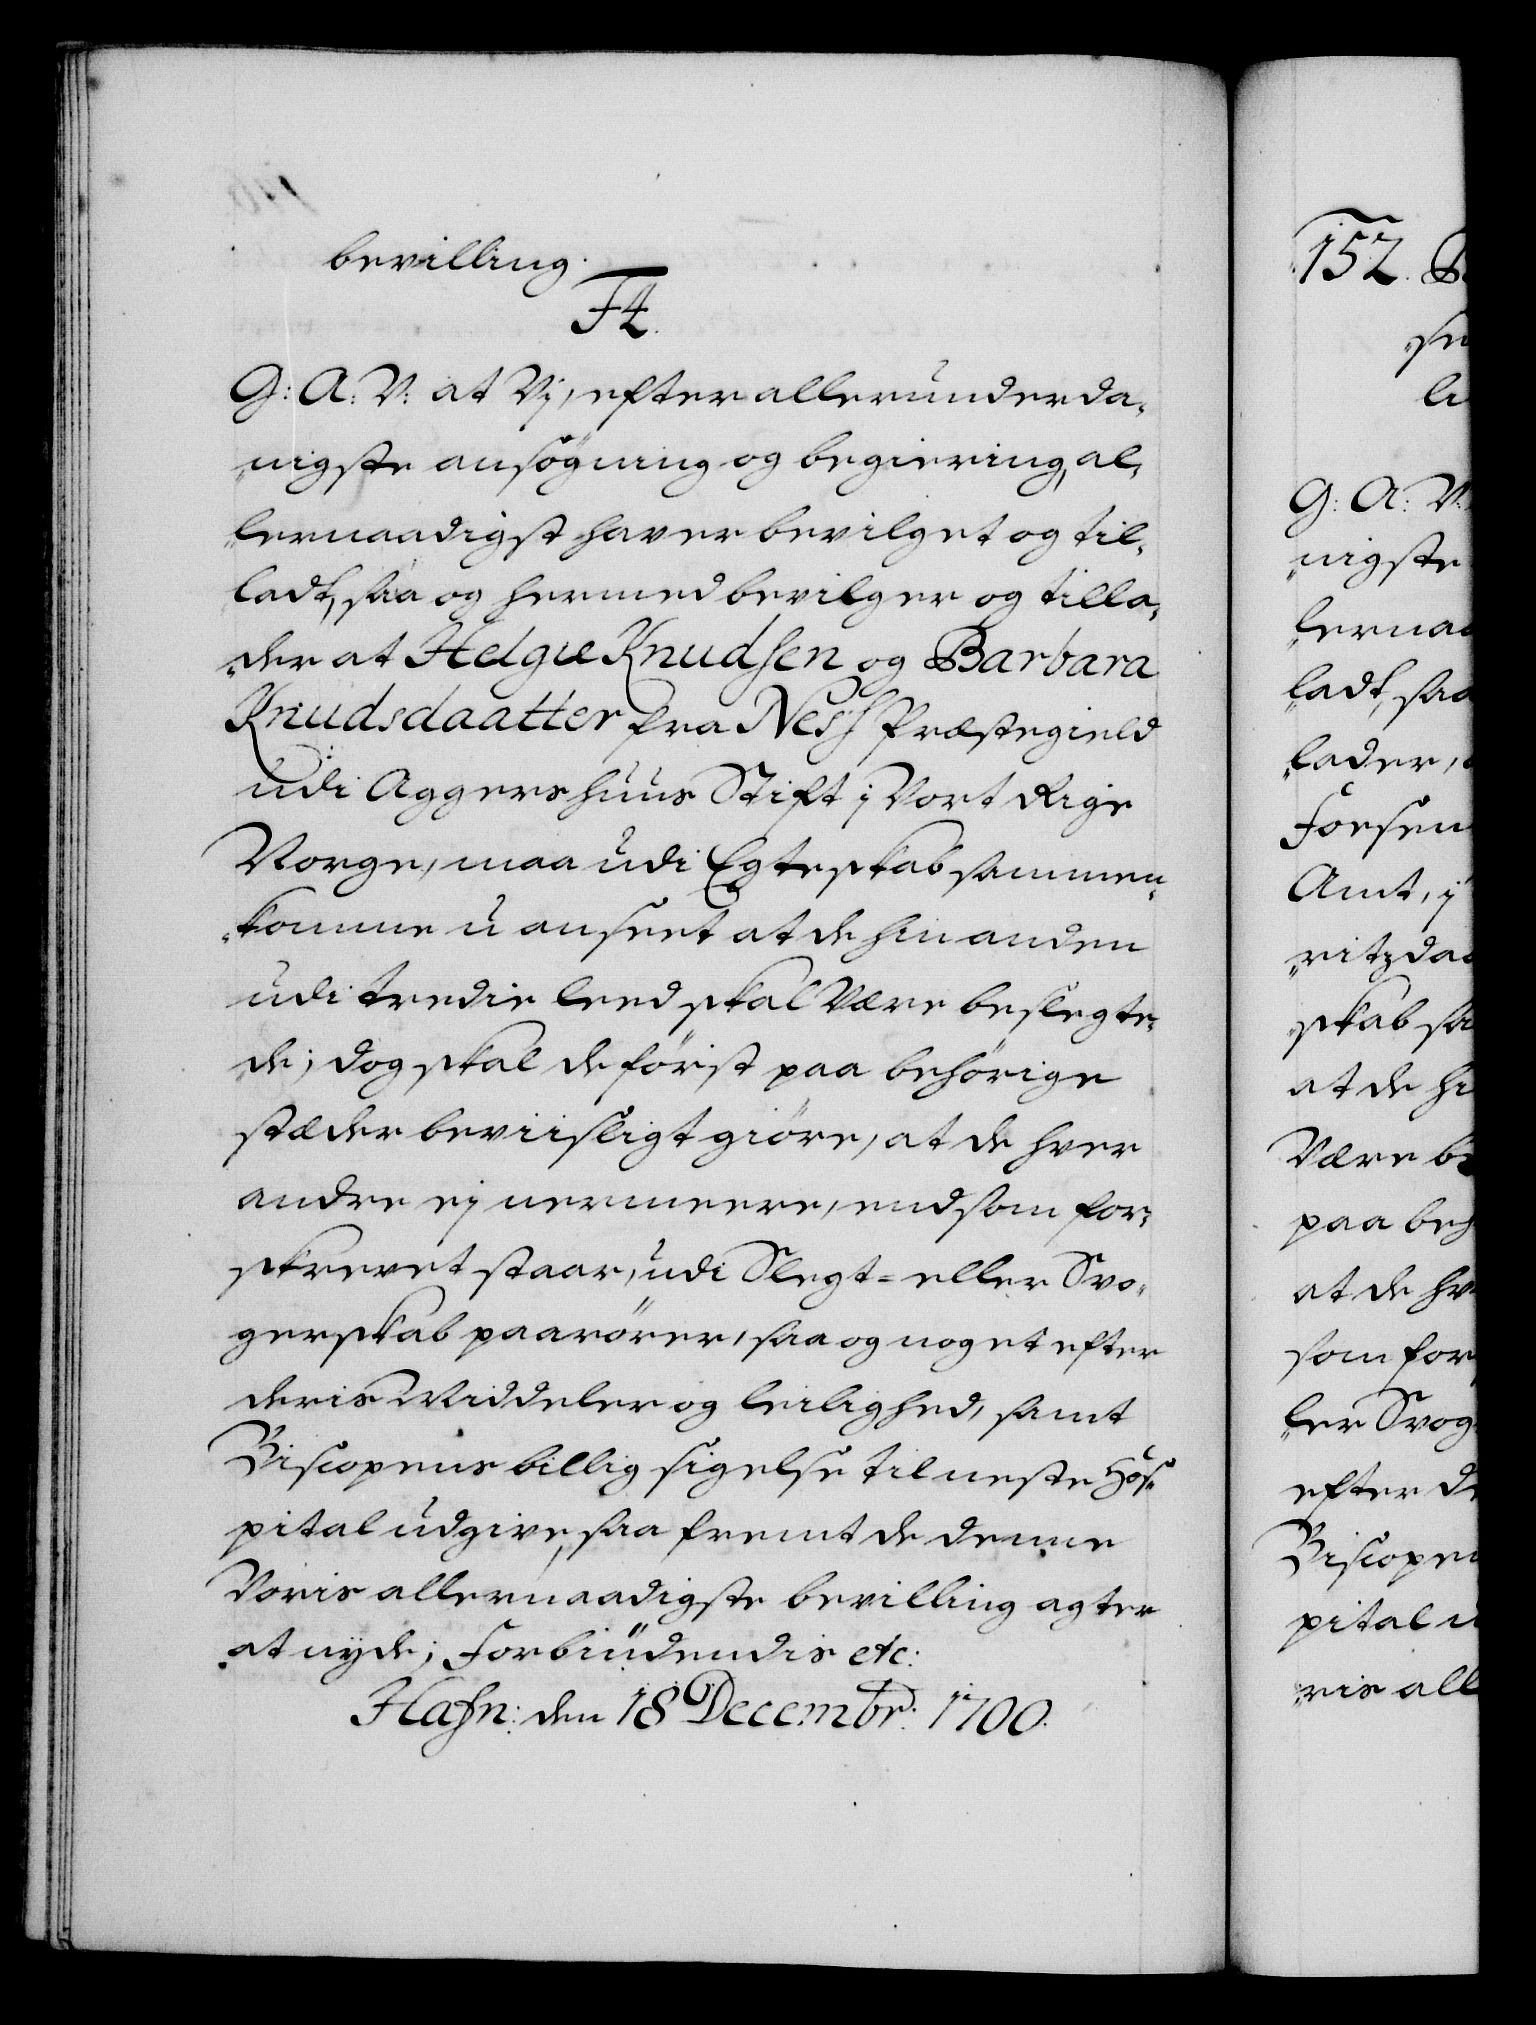 bevilling.
F4.
G: A: V: at Vj, efter allerunderda„
„nigste ansögning og begiering, al„
„lernaadigst haver bevilget og til„
„ladt, saa og hermed bevilger og tilla„
„der at Helgie Knudsen og Barbara
Knudsdaatter fra Ness Præstegield
udi Aggershuus Stift j Vort Rige
Norge, maa udi Egteskab sammen„
„komme u anseet at de hin anden
udi tredie leed skal være beslegte„
„de; dog skal de först paa behörige
stæder beviisligt giöre, at de hver
andre ej nermeere, end som for„
„skrevet staar, udi Slegt= eller Svo„
gerskab paarörer, saa og noget efter
deris Middeler og leilighed, samt
Biscopens billig sigelse til neste Hos„
pital udgive, saa fremt de denne
Voris allernaadigste bevilling agter
at nyde; Forbiudendis etc:
Hafn: den 18 Decembr: 1700.
152.
G: A: V:
„nigste
„lernaa
„ladt, saa
„lader,
Amt, j
„ritzdaa
„skab sa
at de hi
Være be
paa beh
at de hv
som for
„ler Svog
efter de
Biscopen
pital u
„ris all